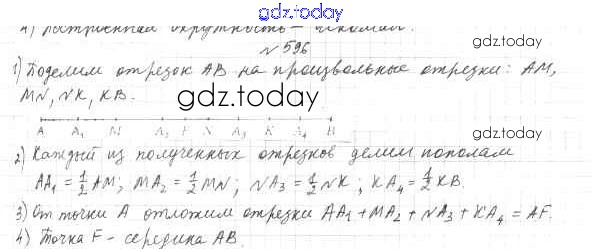 gdz.today
4) Построенная окружность – искомая.
N 596
gdz.today
1) Поделим отрезок AB на произвольные отрезки: AM,
MN, NK, KB.
gdz.today
A A₁ M A₂ F N A₃ K A₄ B
gdz.today
2) Каждый из полученных отрезков делим пополам
AA₁ = 1/2 AM; MA₂ = 1/2 MN; NA₃ = 1/2 NK; KA₄ = 1/2 KB.
3) От точки A отложим отрезки AA₁ + MA₂ + NA₃ + KA₄ = AF.
4) Точка F – середина AB.
gdz.today